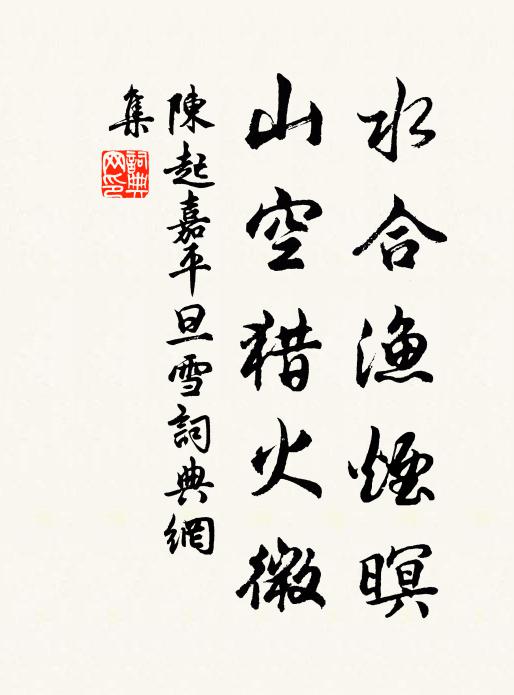 水合渔煙暝
山空猎火微
陳起嘉平旦雪詞典網
集
詞典网印